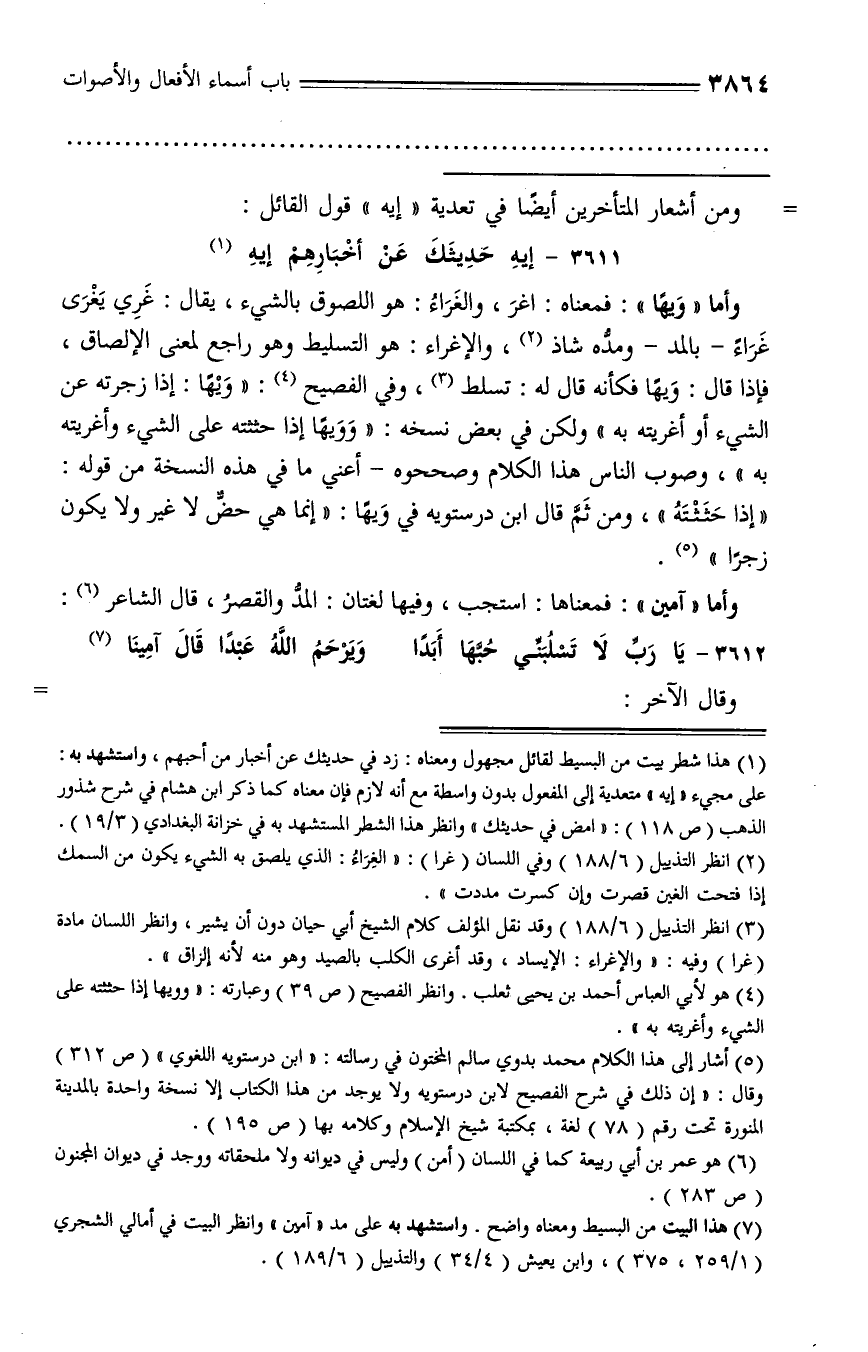 ٣٨٦٤ باب أسماء الأفعال والأصوات
= ومن أشعار المتأخرين أيضًا في تعدية « إيه » قول القائل :
٣٦١١ - إيهِ حَدِيثَكَ عَنْ أخْبَارِهِمْ إيهِ (١)
وأما « وَيهًا » : فمعناه : اغرَ ، والغَرَاءُ : هو اللصوق بالشيء ، يقال : غَرِي يَغْرَى
غَرَاءً - بالمد - ومدُّه شاذ (٢) ، والإغراء : هو التسليط وهو راجع لمعنى الإلصاق ،
فإذا قال : وَيهًا فكأنه قال له : تسلط (٣) ، وفي الفصيح (٤) : « وَيْهًا : إذا زجرته عن
الشيء أو أغريته به » ولكن في بعض نسخه : « وَوَيهًا إذا حثثته على الشيء وأغريته
به » ، وصوب الناس هذا الكلام وصححوه - أعني ما في هذه النسخة من قوله :
« إذا حَثَثْتَهُ » ، ومن ثَمَّ قال ابن درستويه في وَيهًا : « إنما هي حضٌّ لا غير ولا يكون
زجرًا » (٥) .
وأما « آمين » : فمعناها : استجب ، وفيها لغتان : المدُّ والقصرُ ، قال الشاعر (٦) :
٣٦١٢ - يَا رَبِّ لَا تَسْلُبَنِّي حُبَّهَا أَبَدًا وَيَرْحَمُ اللَّهُ عَبْدًا قَالَ آمِينَا (٧)
وقال الآخر : =
(١) هذا شطر بيت من البسيط لقائل مجهول ومعناه : زد في حديثك عن أخبار من أحبهم ، واستشهد به :
على مجيء « إيه » متعدية إلى المفعول بدون واسطة مع أنه لازم فإن معناه كما ذكر ابن هشام في شرح شذور
الذهب ( ص ١١٨ ) : « امض في حديثك » وانظر هذا الشطر المستشهد به في خزانة البغدادي ( ١٩/٣ ) .
(٢) انظر التذييل ( ١٨٨/٦ ) وفي اللسان ( غرا ) : « الغِرَاءُ : الذي يلصق به الشيء يكون من السمك
إذا فتحت الغين قصرت وإن كسرت مددت » .
(٣) انظر التذييل ( ١٨٨/٦ ) وقد نقل المؤلف كلام الشيخ أبي حيان دون أن يشير ، وانظر اللسان مادة
( غرا ) وفيه : « والإغراء : الإيساد ، وقد أغرى الكلب بالصيد وهو منه لأنه إلزاق » .
(٤) هو لأبي العباس أحمد بن يحيى ثعلب . وانظر الفصيح ( ص ٣٩ ) وعبارته : « وويها إذا حثثته على
الشيء وأغريته به » .
(٥) أشار إلى هذا الكلام محمد بدوي سالم المختون في رسالته : « ابن درستويه اللغوي » ( ص ٣١٢ )
وقال : « إن ذلك في شرح الفصيح لابن درستويه ولا يوجد من هذا الكتاب إلا نسخة واحدة بالمدينة
المنورة تحت رقم ( ٧٨ ) لغة ، بمكتبة شيخ الإسلام وكلامه بها ( ص ١٩٥ ) .
(٦) هو عمر بن أبي ربيعة كما في اللسان ( أمن ) وليس في ديوانه ولا ملحقاته ووجد في ديوان المجنون
( ص ٢٨٣ ) .
(٧) هذا البيت من البسيط ومعناه واضح . واستشهد به على مد « آمين » وانظر البيت في أمالي الشجري
( ٢٥٩/١ ، ٣٧٥ ) ، وابن يعيش ( ٣٤/٤ ) والتذييل ( ١٨٩/٦ ) .